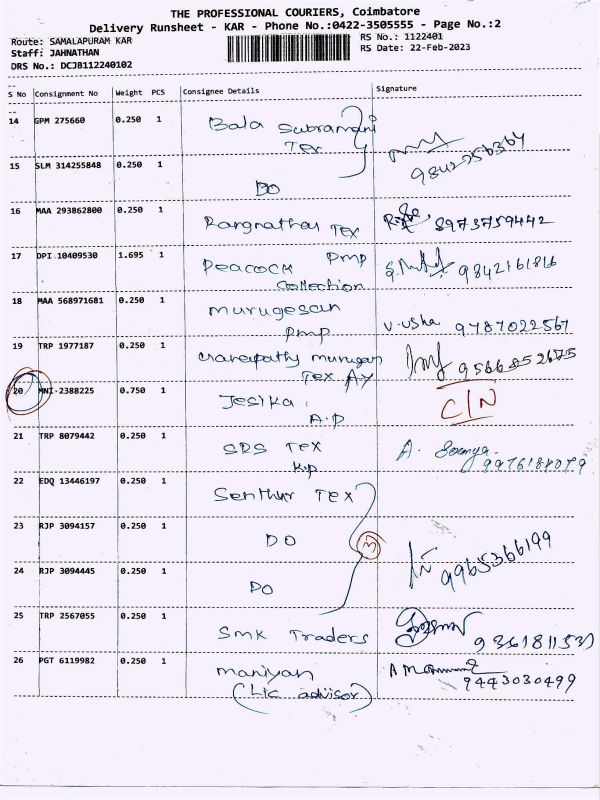 THE PROFESSIONAL COURIERS, Coimbatore
Delivery Runsheet - KAR - Phone No.:0422-3505555 - Page No.:2
Route: SAMALAPURAM KAR RS No.: 1122401
Staff: JAHNATHAN RS Date: 22-Feb-2023
DRS No.: DCJB112240102
S No Consignment No Weight PCS Consignee Details Signature
14 GPM 275660 0.250 1 Bala Subramani
Tex 9842256364
15 SLM 314255848 0.250 1
DO
16 MAA 293862800 0.250 1 Rangnathan Tex 8973759442
17 DPI 10409530 1.695 1 PMP
Peacock 9842161816
Collection
18 MAA 568971681 0.250 1 Murugesan
PMP V.Usha 9787022567
19 TRP 1977187 0.250 1 murugan
Tex AY 9566852675
20 MNI-2388225 0.750 1 Jesika C/N
A.P
21 TRP 8079442 0.250 1 SRS Tex A. Sowmya.
K.P 9976188079
22 EDQ 13446197 0.250 1 Senthur Tex
23 RJP 3094157 0.250 1 DO 3
9965366199
24 RJP 3094445 0.250 1
DO
25 TRP 2567055 0.250 1
SMK Traders
26 PGT 6119982 0.250 1 Maniyan
(Lic advisor) 9443030499